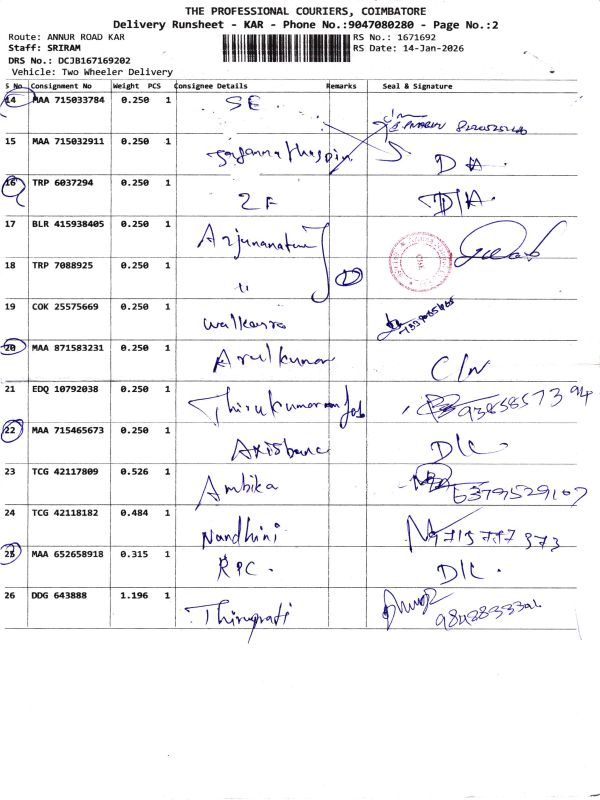 THE PROFESSIONAL COURIERS, COIMBATORE
Delivery Runsheet - KAR - Phone No.:9047080280 - Page No.:2
Route: ANNUR ROAD KAR RS No.: 1671692
Staff: SRIRAM RS Date: 14-Jan-2026
DRS No.: DCJB167169202
Vehicle: Two Wheeler Delivery
S No Consignment No Weight PCS Consignee Details Remarks Seal & Signature
14 MAA 715033784 0.250 1 SE
15 MAA 715032911 0.250 1
16 TRP 6037294 0.250 1 ZF
17 BLR 415938405 0.250 1
18 TRP 7088925 0.250 1 "
19 COK 25575669 0.250 1
20 MAA 871583231 0.250 1 Arulkumar
21 EDQ 10792038 0.250 1 Thirukumaran
22 MAA 715465673 0.250 1 D/C.
23 TCG 42117809 0.526 1 Ambika 6379529107
24 TCG 42118182 0.484 1 Nandhini 9715777973
25 MAA 652658918 0.315 1 RPC. D/C.
26 DDG 643888 1.196 1 Thirupati